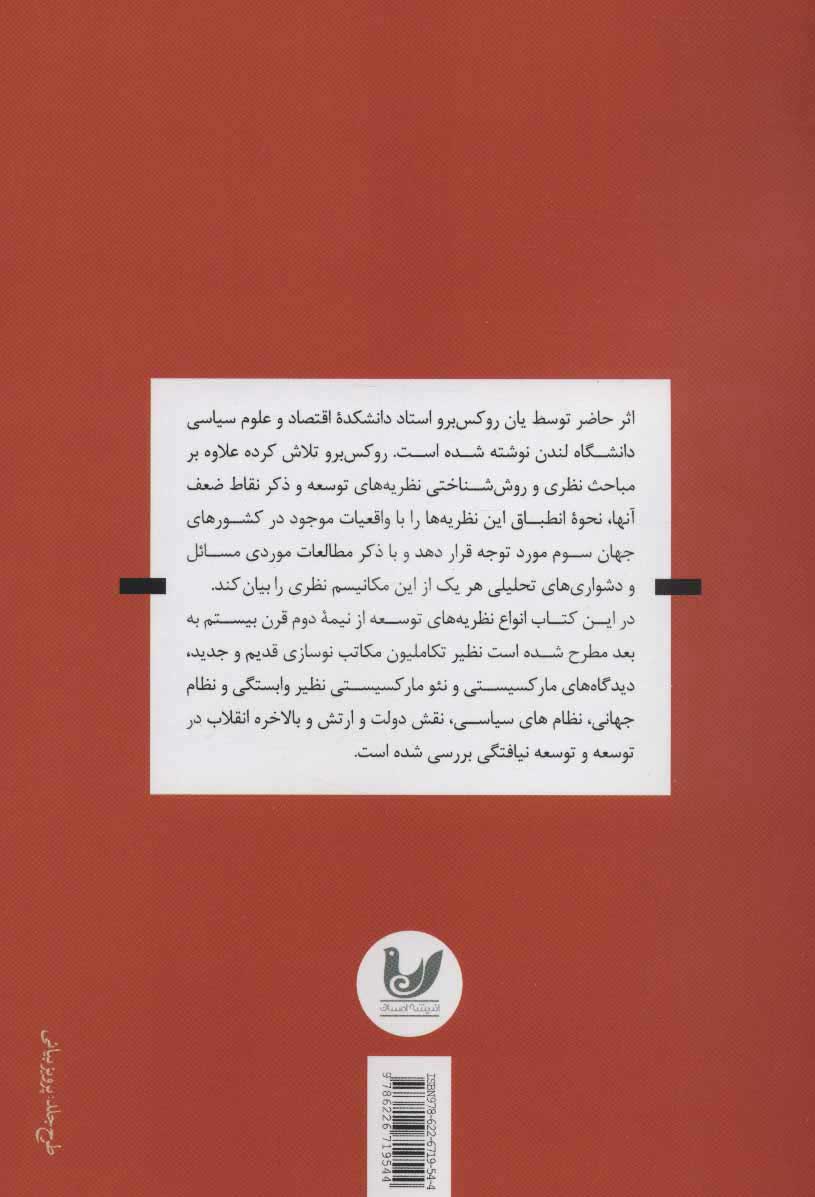 اثر حاضر توسط یان روکس‌برو استاد دانشکدهٔ اقتصاد و علوم سیاسی
دانشگاه لندن نوشته شده است. روکس‌برو تلاش کرده علاوه بر
مباحث نظری و روش‌شناختی نظریه‌های توسعه و ذکر نقاط ضعف
آنها، نحوهٔ انطباق این نظریه‌ها را با واقعیات موجود در کشورهای
جهان سوم مورد توجه قرار دهد و با ذکر مطالعات موردی مسائل
و دشواری‌های تحلیلی هر یک از این مکانیسم نظری را بیان کند.
در این کتاب انواع نظریه‌های توسعه از نیمهٔ دوم قرن بیستم به
بعد مطرح شده است نظیر تکاملیون مکاتب نوسازی قدیم و جدید،
دیدگاه‌های مارکسیستی و نئو مارکسیستی نظیر وابستگی و نظام
جهانی، نظام های سیاسی، نقش دولت و ارتش و بالاخره انقلاب در
توسعه و توسعه نیافتگی بررسی شده است.
اندیشه احسان
ISBN978-622-6719-54-4
9 786226 719544
طرح جلد: پرویز بیانی